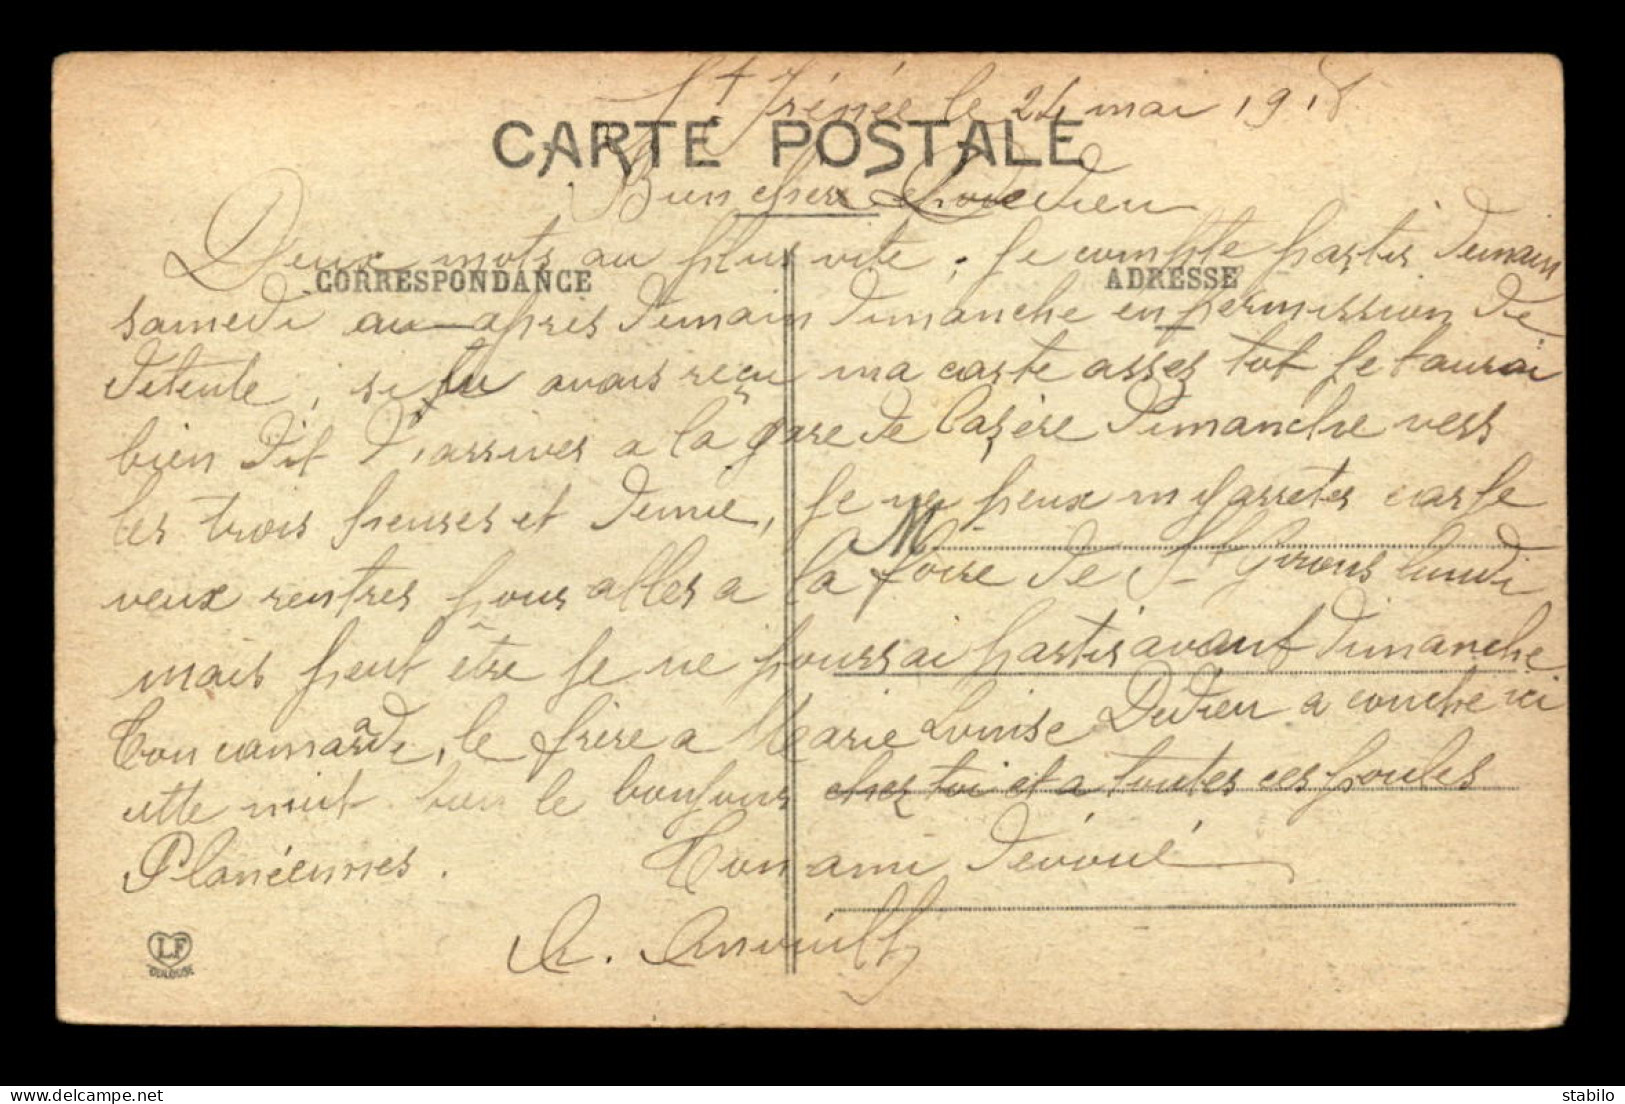 St Irénée le 24 mai 1918
CARTE POSTALE
Bien cher Dedieu
Deux mots au plus vite, je compte partir demain
CORRESPONDANCE
ADRESSE
samedi au après demain dimanche en permission de
détente, si tu avais reçu ma carte asses tot je taurai
bien dit d'arriver a la gare de Cazère dimanche vers
les trois heures et demie, je ne peux m'y arreter car je
M
veux rentrer pour aller a la foire de St Girons lundi
mais peut être je ne pourrai partir avant dimanche
Ton camarade, le frère a Marie Louise Dedieu a couche ici
cette nuit bien le bonjour chez toi et a toutes ces poules
Planéennes. Ton ami dévoué
LF
TOULOUSE
A.
stabilo